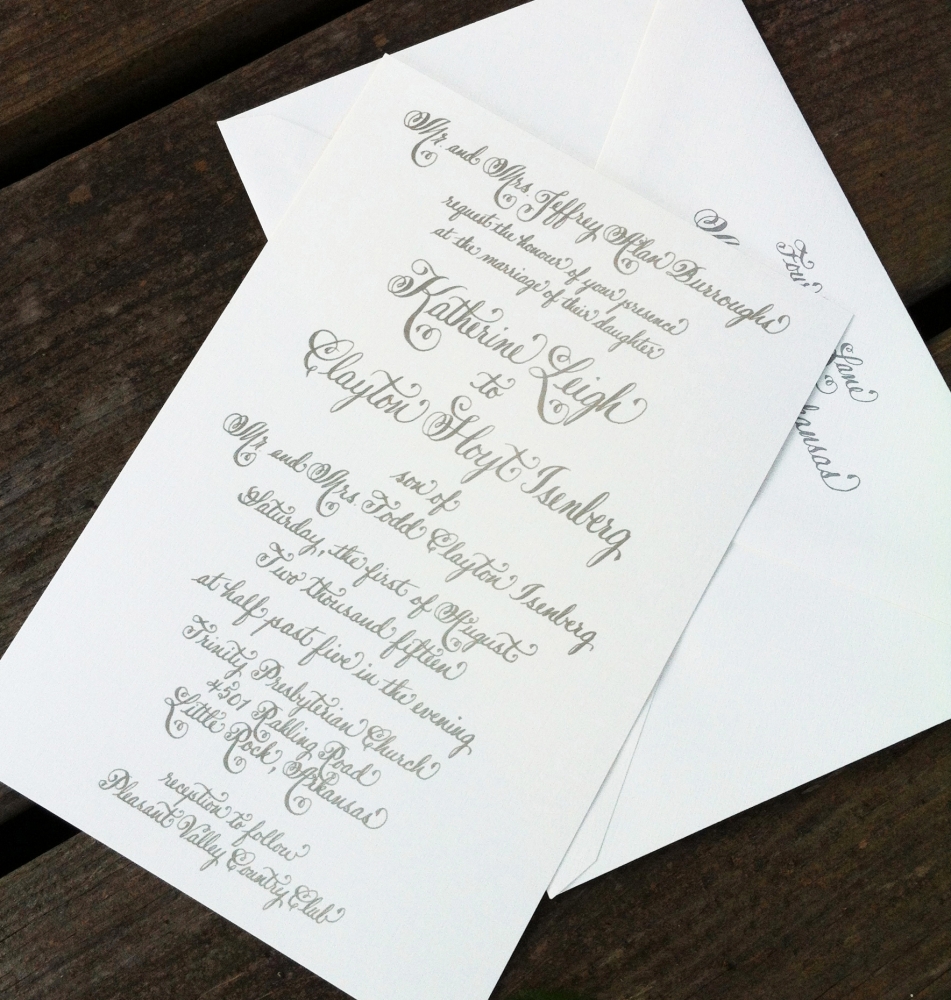 Mr. and Mrs. Jeffrey Alan Burroughs
request the honour of your presence
at the marriage of their daughter
Katherine Leigh
to
Clayton Hoyt Isenberg
son of
Mr. and Mrs. Todd Clayton Isenberg
Saturday, the first of August
Two thousand fifteen
at half past five in the evening
Trinity Presbyterian Church
4501 Rahling Road
Little Rock, Arkansas
reception to follow
Pleasant Valley Country Club
Lane